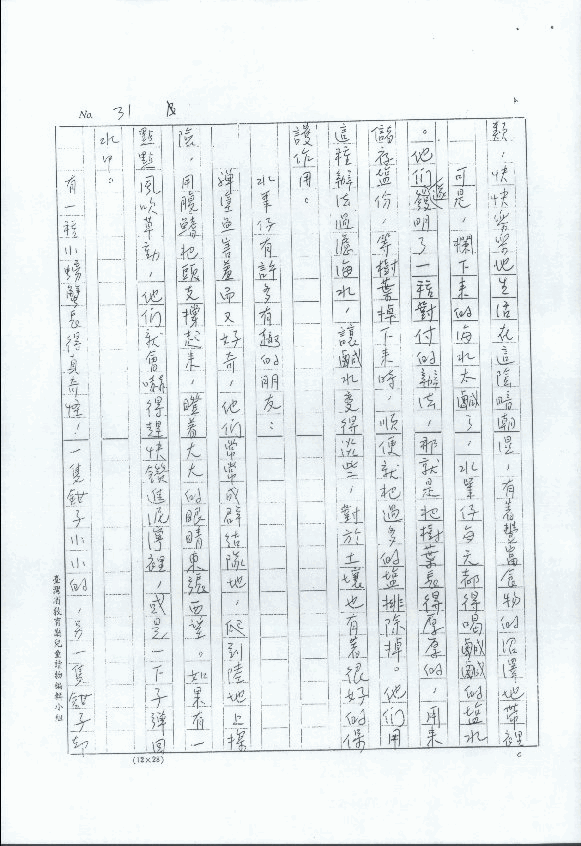 No. 31
類，快快樂樂地生活在這陰暗潮溼，有著豐富食物的沼澤地帶裡
可是，攔下來的海水太鹹了，水筆仔每天都得喝鹹鹹的鹽水
。他們發明了一種對付的辦法，那就是把樹葉長得厚厚的，用來
儲存鹽份，等樹葉掉下來時，順便就把過多的鹽排除掉。他們用
這種辦法過濾海水，讓鹹水變得淡些，對於土壤也有著很好的保
護作用。
水筆仔有許多有趣的朋友：
彈塗魚害羞而又好奇，他們常常成群結隊地，爬到陸地上探
險，用腹鰭把頭支撐起來，瞪著大大的眼睛東張西望。如果有一
點點風吹草動，他們就會嚇得趕快鑽進泥濘裡，或是一下子彈回
水中。
有一種小螃蟹長得真奇怪！一隻鉗子小小的，另一隻鉗子卻
臺灣省教育廳兒童讀物編輯小組
(12×25)